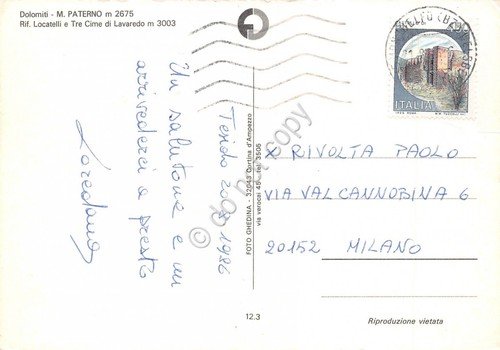 Dolomiti - M. PATERNO m 2675
Rif. Locatelli e Tre Cime di Lavaredo m 3003
20-8 1986
Un salutone e un
arrivederci a presto
Loredana
FOTO GHEDINA - 32043 Cortina d'Ampezzo
via verocai 45 - tel. 3505
ITALIA
X RIVOLTA PAOLO
VIA VALCANNOBINA 6
20152 MILANO
12.3
Riproduzione vietata